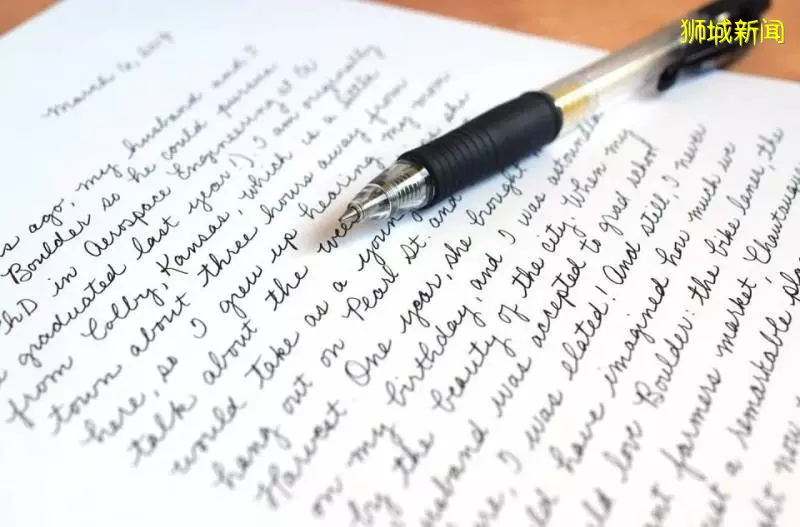 狮城新闻
March 6, 2019
ago, my husband and I
Boulder so he could pursue
PhD in Aerospace Engineering at
graduated last year!). I am originally
from Colby, Kansas, which is a little
town about three hours away from
here, so I grew up hearing my mom
talk about the
would take as a young
hang out on Pearl St. and
Harvest. One year, she brought
on my birthday, and I was astounded
by the beauty of the city. When my
husband was accepted to grad school
I was elated! And still, I never
have imagined how much we
love Boulder: the bike lanes, the
farmers market, Chautauqua
a remarkable
now